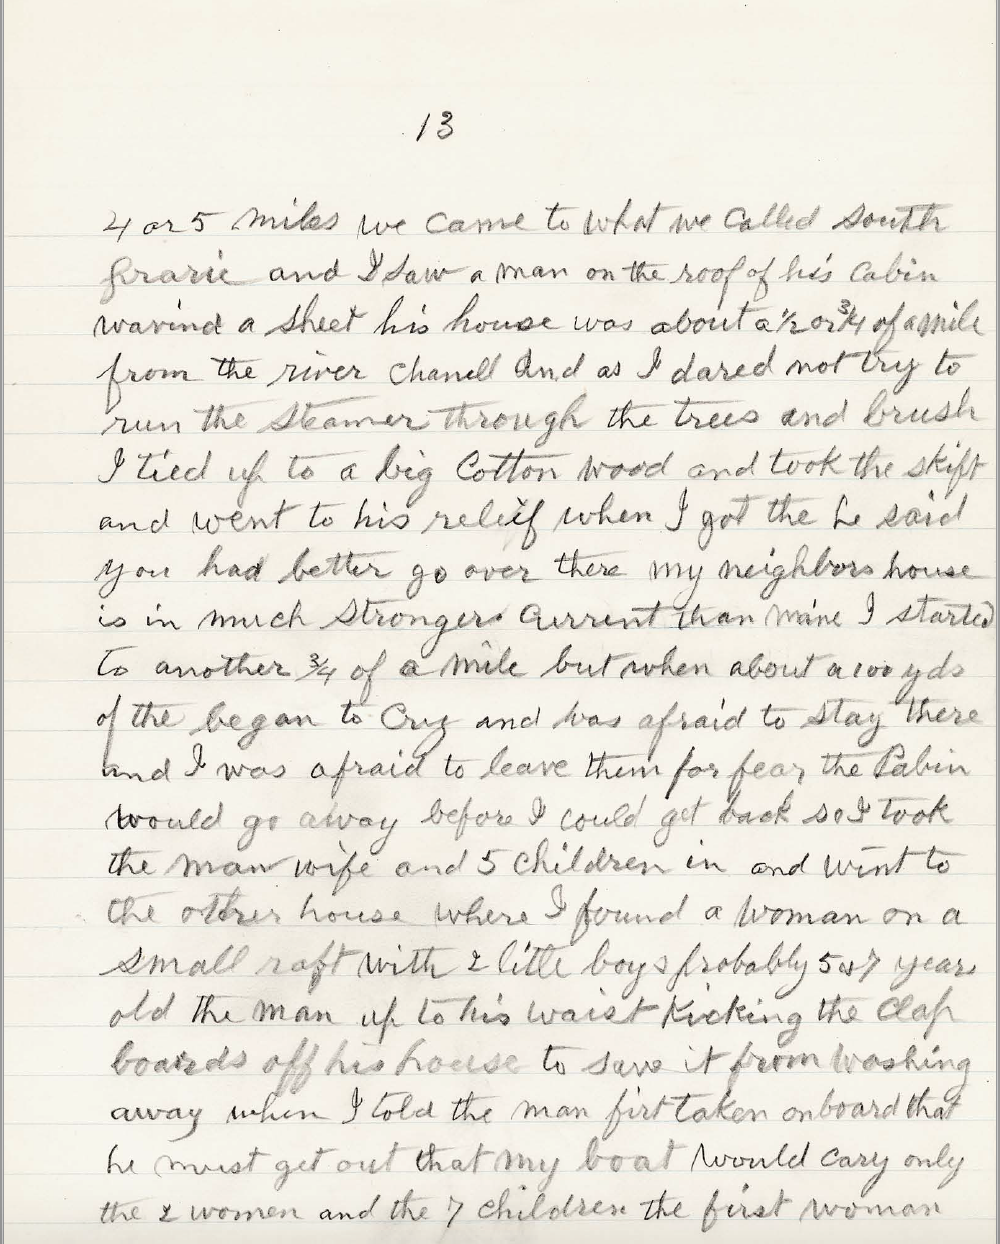 13
4 or 5 miles we came to what we called South
Prarie and I saw a man on the roof of his Cabin
wavind a sheet his house was about a 1/2 or 3/4 of a mile
from the river chanell And as I dared not try to
run the Steamer through the trees and brush
I tied up to a big Cotton wood and took the skift
and went to his releif when I got the he said
you had better go over there my neighbors house
is in much Stronger Current than mine I started
to another 3/4 of a mile but when about a 100 yds
of the began to Cry and was afraid to stay there
and I was afraid to leave them for fear the Cabin
would go away before I could get back so I took
the man wife and 5 Children in and wint to
the other house where I found a woman on a
small raft with 2 little boys probably 5 or 7 years
old the man up to his waist Kicking the Clap
boards off his house to save it from washing
away when I told the man firt taken onboard that
he must get out that my boat would cary only
the 2 women and the 7 children the first woman